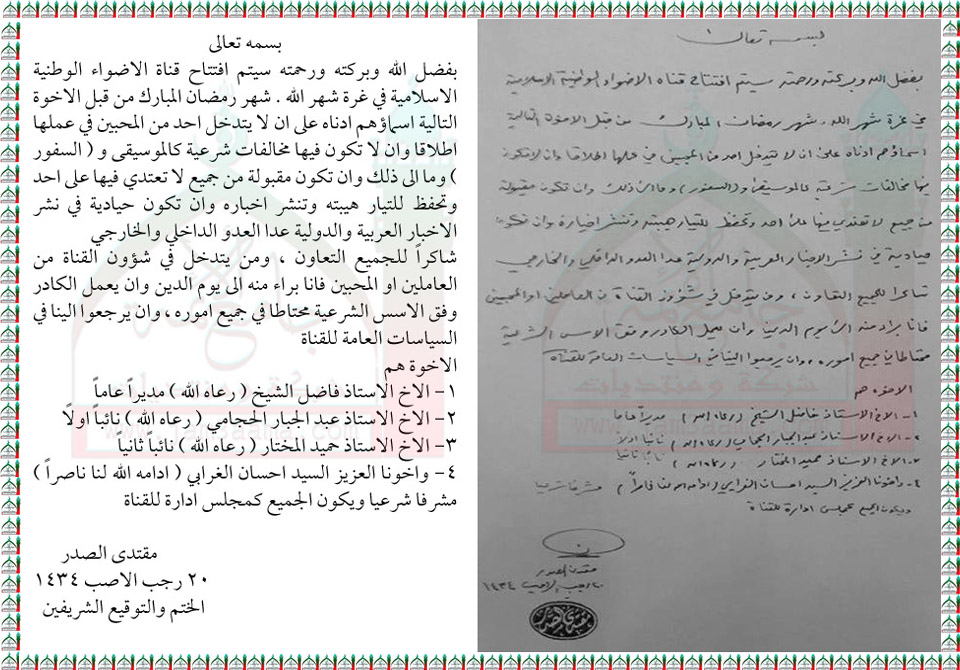 بسمه تعالى
بفضل الله وبركته ورحمته سيتم افتتاح قناة الاضواء الوطنية
الاسلامية في غرة شهر الله . شهر رمضان المبارك من قبل الاخوة
التالية اسماؤهم ادناه على ان لا يتدخل احد من المحبين في عملها
اطلاقا وان لا تكون فيها مخالفات شرعية كالموسيقى و ( السفور
) وما الى ذلك وان تكون مقبولة من جميع لا تعتدي فيها على احد
وتحفظ للتيار هيبته وتنشر اخباره وان تكون حيادية في نشر
الاخبار العربية والدولية عدا العدو الداخلي والخارجي
شاكراً للجميع التعاون ، ومن يتدخل في شؤون القناة من
العاملين او المحبين فانا براء منه الى يوم الدين وان يعمل الكادر
وفق الاسس الشرعية محتاطا في جميع اموره ، وان يرجعوا الينا في
السياسات العامة للقناة
الاخوة هم
١- الاخ الاستاذ فاضل الشيخ ( رعاه الله ) مديراً عاماً
٢- الاخ الاستاذ عبد الجبار الحجامي ( رعاه الله ) نائباً اولًا
٣- الاخ الاستاذ حميد المختار ( رعاه الله ) نائباً ثانياً
٤- واخونا العزيز السيد احسان الغرابي ( ادامه الله لنا ناصراً )
مشرفا شرعيا ويكون الجميع كمجلس ادارة للقناة
مقتدى الصدر
٢٠ رجب الاصب ١٤٣٤
الختم والتوقيع الشريفين
بسمه تعالى
بفضل الله وبركته ورحمته سيتم افتتاح قناة الاضواء الوطنية الاسلامية
في غرة شهر الله . شهر رمضان المبارك من قبل الاخوة التالية
اسماؤهم ادناه على ان لا يتدخل احد من المحبين في عملها اطلاقا وان لا تكون
فيها مخالفات شرعية كالموسيقى و (السفور) وما الى ذلك وان تكون مقبولة
من جميع لا تعتدي فيها على احد وتحفظ للتيار هيبته وتنشر اخباره وان تكون
حيادية في نشر الاخبار العربية والدولية عدا العدو الداخلي والخارجي
شاكرا للجميع التعاون ، ومن يتدخل في شؤون القناة من العاملين او المحبين
فانا براء منه الى يوم الدين وان يعمل الكادر وفق الاسس الشرعية
محتاطا في جميع اموره ، وان يرجعوا الينا في السياسات العامة للقناة
الاخوة هم
١- الاخ الاستاذ فاضل الشيخ ( رعاه الله ) مديراً عاما
٢- الاخ الاستاذ عبد الجبار الحجامي ( رعاه الله ) نائبا اولا
٣- الاخ الاستاذ حميد المختار ( رعاه الله ) نائبا ثانيا
٤- واخونا العزيز السيد احسان الغرابي ( ادامه الله لنا ناصراً ) مشرفا شرعيا
ويكون الجميع كمجلس ادارة للقناة
مقتدى الصدر
٢٠ رجب الاصب ١٤٣٤
مقتدى الصدر
شبكة ومنتديات